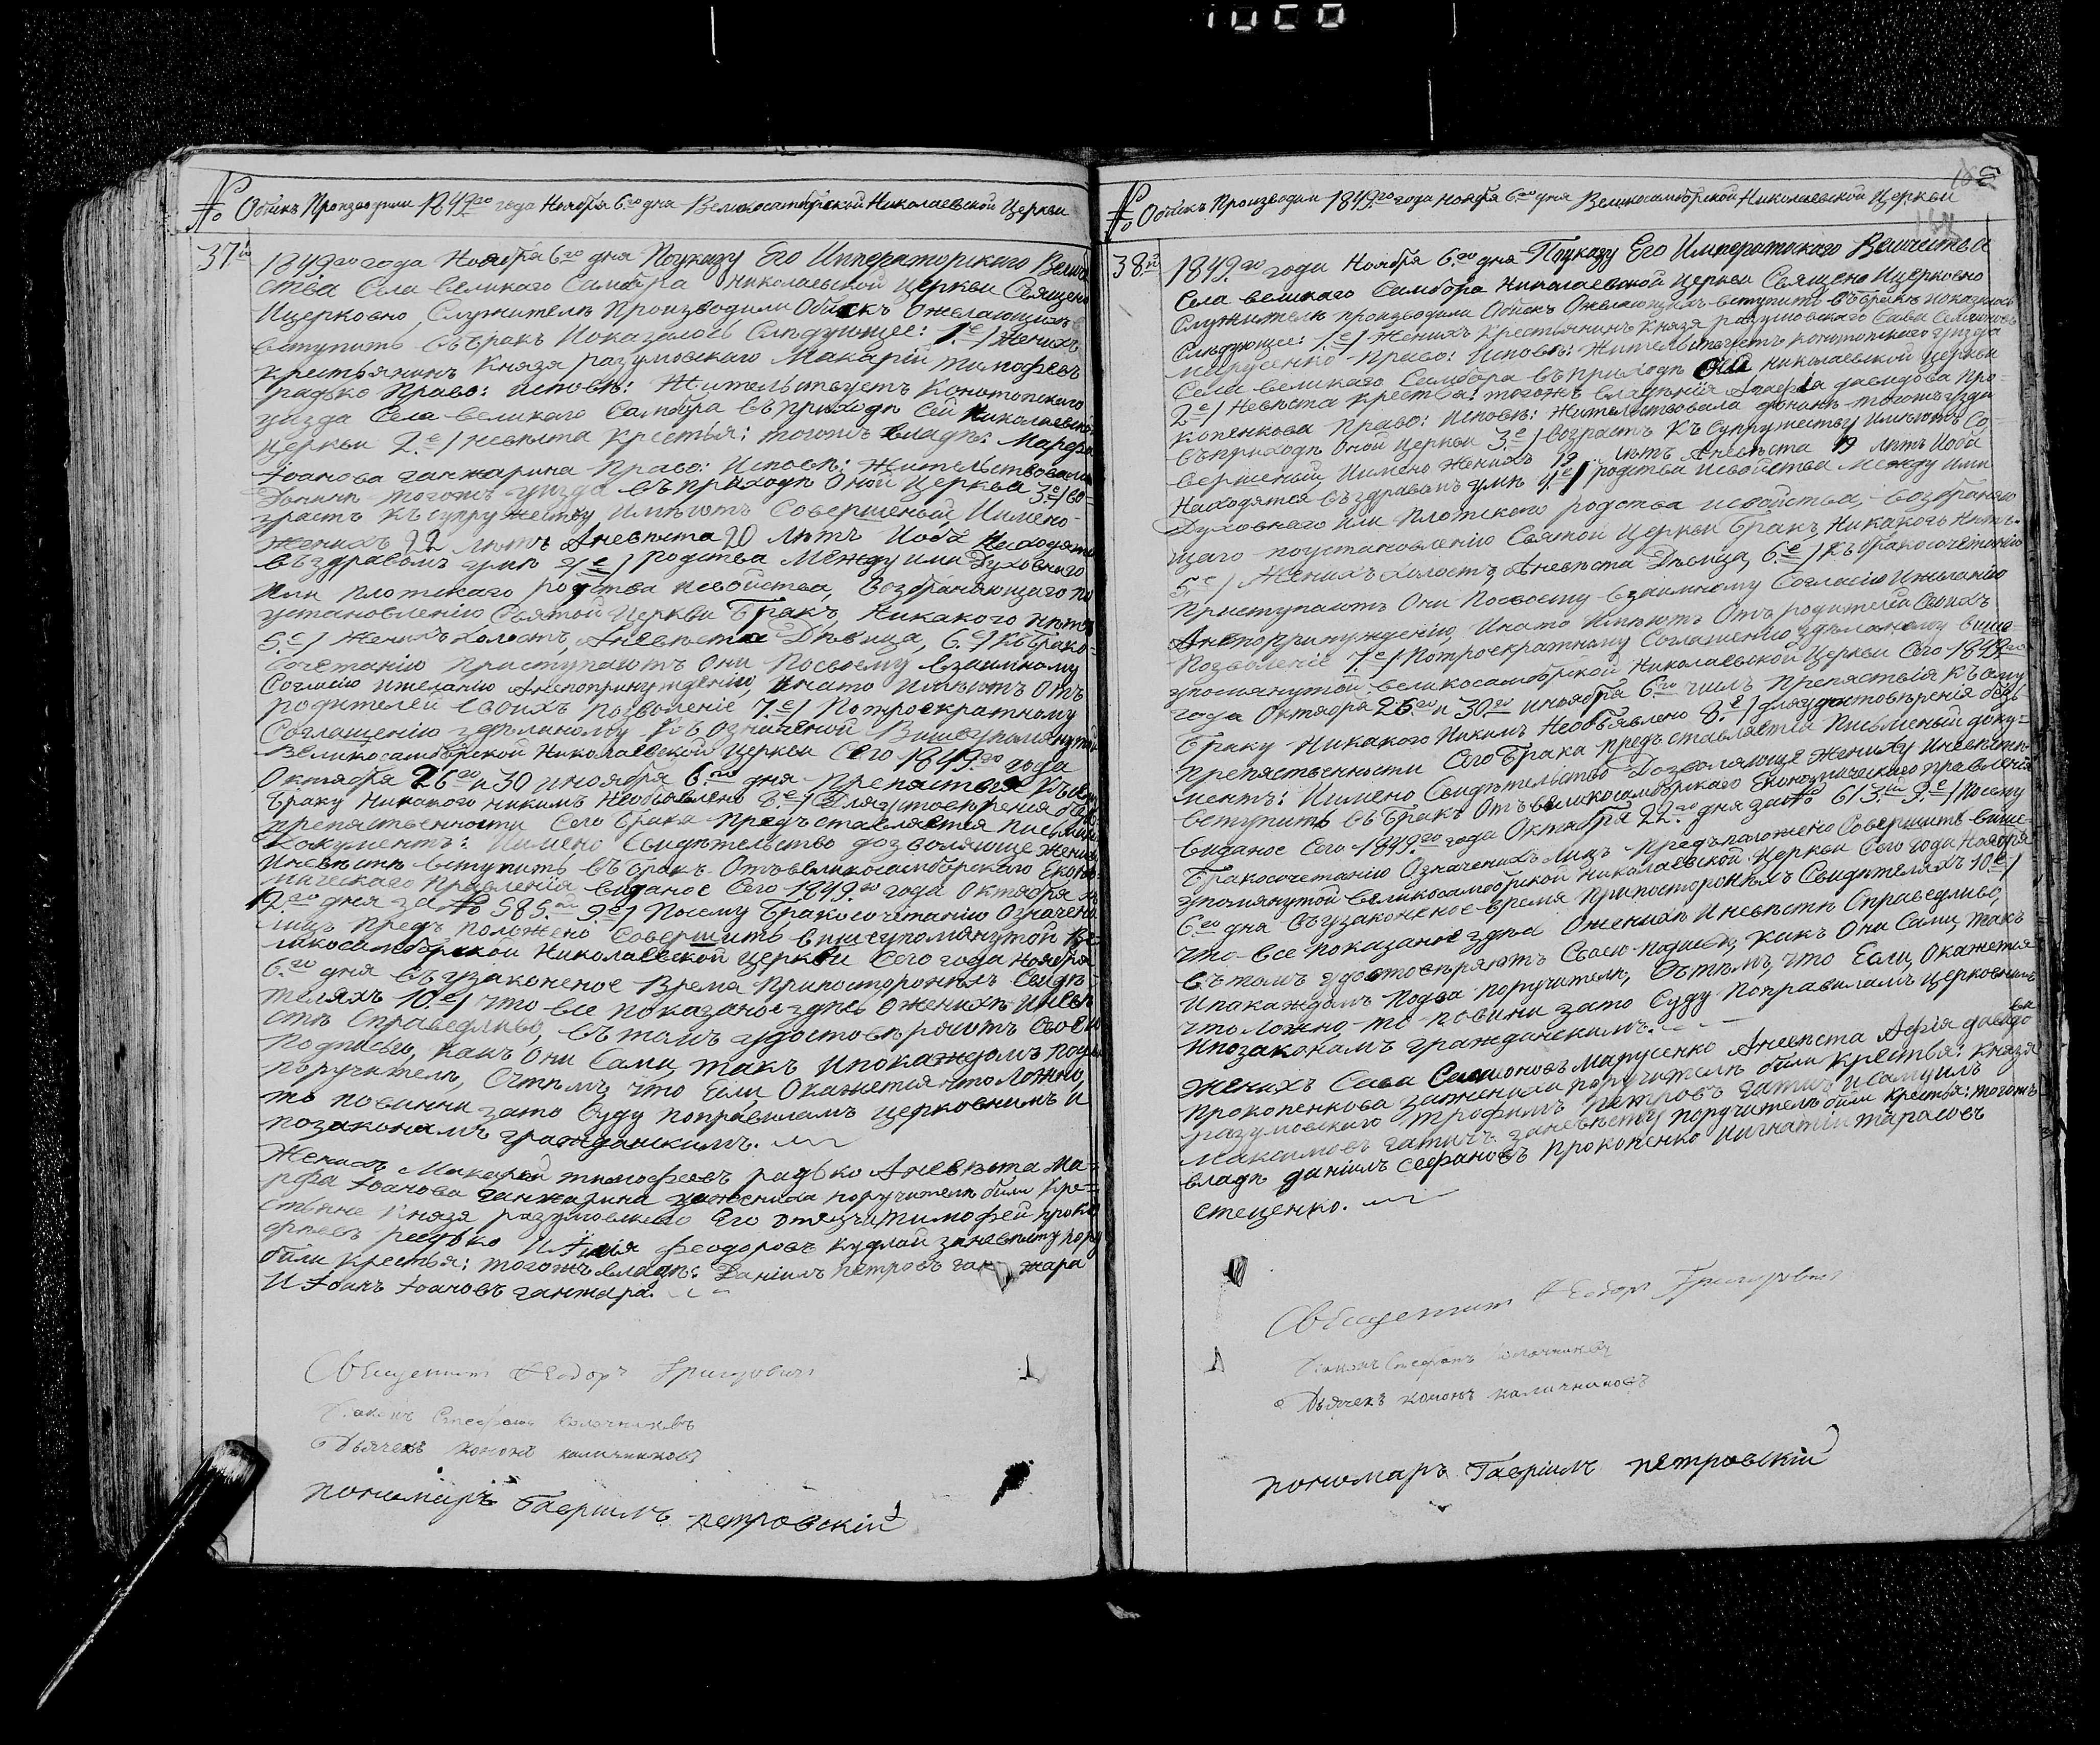 № Обискъ Производили 1849го года Ноября 6го дня Великосамборской Николаевской Церкви
37й
1849го года Ноября 6го дня Поуказу Его Императорского Величе
ства Села великаго Самбора Николаевской церкви Священо
Ицерковно Служителѣ Производили Обискъ Ожелающихъ
вступить въбракъ Показалось Слѣдующее: 1.е/ Женихъ
крестьянинъ Князя разумовскаго Макарій тимофеевъ
радько Право: исповѣ: Жительствуетъ Конотопского
уизда Села великаго Самбора въприходѣ Сей Николаевской
церкви 2.е/ невѣста крестья: тогожъ владѣ: Марфа
Іоанова ганжарина Право: Исповѣ: Жительствовала
донинѣ тогожъ уизда въприходѣ Оной церкви 3.е/ во-
зрастъ къ супружеству Имѣютъ Совершеный, Иимено
женихъ 22 лѣтъ Аневѣста 20 лѣтъ Иоба Находятся
въздравомъ умѣ 4/е/ родства Между ими Духовнаго
Или плотскаго родства исвойства, возбраняющаго по
установленію Святой Церкви Бракъ, Никакого нѣтъ
5.е/ Женихъ холостъ, Аневѣста Дѣвица, 6.е/ Къ Брако-
сочетанію приступаютъ Они Посвоему взаимному
Согласію Ижеланію Анепопринуждению, Инато Имѣютъ Отъ
родителей Своихъ позволеніе 7.е/ Потроекратному
Соглашению здѣланому Въ Означеной Вишеупомянутой
Великосамборской Николаевской церкви Сего 1849.го года
Октября 26го и 30 иноября 6го дня Препяствія Късему
Браку Никакого никимъ Необъявлено 8.е/ Для удостовѣренія безъ
препяственности Сего брака предъставляется писменный
документъ: Иимено Свидѣтельство дозволяюще жениху
Иневѣстѣ вступить въ Бракъ Отъвеликосамборскаго Еконо-
мическаго правленія виданое Сего 1849.го года Октября
дня за № 585. 9.е/ Посему Бракосочетанію Означено
лицъ Предъ положено Совершить ввишеупомянутой Ве-
ликосамборской Николаевской церкви Сего года Ноября
6.го дня въузаконеное Время припосторонихъ Свидѣ-
теляхъ 10.е/ что все показаное здѣсь Оженихѣ Иневѣ-
стѣ Справедливо, въ томъ удостовѣряютъ Своею
подписью, какъ Они Сами, такъ Ипокаждомъ подва
поручителѣ, Стѣмъ, что Если Окажется что ложно,
то повинни зато Суду поправиламъ церковнимъ и
позаконамъ гражданскимъ.
Женихъ Макарій тимофеевъ радько Аневѣста Ма-
рфа Іоанова ганжарина заженика поручителѣ били кре-
стьяне Князя разумовскаго Его отецъ тимофей проко
фиевъ радько И Илія феодоровъ кудлай заневѣсту пору
били крестья: тогожъ владѣ: Даніилъ петровъ ганжара
И Іоанъ Іоановъ ганжара.
Священникъ Ѳеодоръ Григоровичъ
Діаконъ Стефанъ Калачниковъ
Дьячекъ кононъ калачниковъ
пономаръ Гавріилъ петровскій
№ Обискъ Производили 1849.го года ноября 6.го дня Великосамборской Николаевской Церкви
38.й
1849.го года Ноября 6.го дня Поуказу Его Императоскаго Величества
Села великаго Самбора Николаевской церкви Священо Ицерковно
Служителѣ производили Обискъ Ожелающихъ вступить въбракъ показалось
Слѣдующее: 1.е/ Женихъ Крестьянинъ Князя разумовскаго Сава Семіоновъ
Марусенко Право: Исповѣ: Жительствуетъ конотопскаго уизда
Села великаго Самбора въприходѣ Сей Николаевской церкви
2.е/ Невѣста крестья: тогожъ владѣнія Агафія давидова про-
копенкова Право: Исповѣ: жительствовала донинѣ тогожъ уизда
въприходѣ Оной церкви 3.е/ возрастъ къ Супружеству Имѣютъ Со-
вершеный, Иимено Женихъ 19 лѣтъ Аневѣста 19 лѣтъ Иоба
Находятся въздравомъ умѣ 4.е/ родства исвойства Между ими
Духовнаго или плотскаго родства исвойства, возбраняю
щаго поустановленію Святой Церкви бракъ, Никакого Нѣтъ.
5.е/ Женихъ холостъ, Аневѣста Дѣвица, 6.е/ Къ бракосочетанію
приступаютъ Они Посвоему взаимному Согласію Ижеланію
Анепопринуждению, Инато Имѣютъ Отъ родителей Своихъ
Позволеніе 7.е/ Потроекратному Соглашению здѣланому више-
упомянутой великосамборской Николаевской Церкви Сего 1849.го
года Октября 26.го и 30.го иноября 6.го числъ Препяствія къ сему
Браку Никакого Никимъ Необъявлено 8.е/ Дляудостовѣренія безъ
препяственности Сего Брака предъставляется Писменый доку-
ментъ: Иимено Свидѣтельство Дозволяюще Жениху Иневѣстѣ
вступить въ Бракъ Отъ великосамборскаго Економическаго правленія
виданое Сего 1849.го года Октября 22.го дня за № 613. 9.е/ Посему
Бракосочетанію Означенихъ Лицъ предъположено Совершить више-
упомянутой Великосамборской Николаевской Церкви Сего года Ноября
6.го дня въузаконеное время припосторонихъ Свидѣтеляхъ 10.е/
что все показаное здѣсь Оженихѣ Иневѣстѣ Справедливо,
въ томъ удостовѣряютъ Своею подписью, какъ Они Сами, такъ
Ипокаждомъ подва поручителѣ, Стѣмъ, что Если, Окажется
что ложно, то повини зато Суду поправиламъ церковнимъ
Ипозаконамъ гражданскимъ.
Женихъ Сава Самионовъ Марусенко Аневѣста Агафія давидова
прокопенкова заженика поручителѣ били крестья: князя
разумовскаго Трофимъ петровъ гатичъ исамуилъ
Максимовъ гатичъ заневѣсту поручителѣ били крестья: тогожъ
владѣ даніилъ стефановъ прокопенко Иигнатій тарасовъ
стеценко.
Священникъ Ѳеодоръ Григоровичъ
Діаконъ Стефанъ Калачниковъ
Дьячекъ кононъ калачниковъ
пономаръ Гавріилъ петровскій